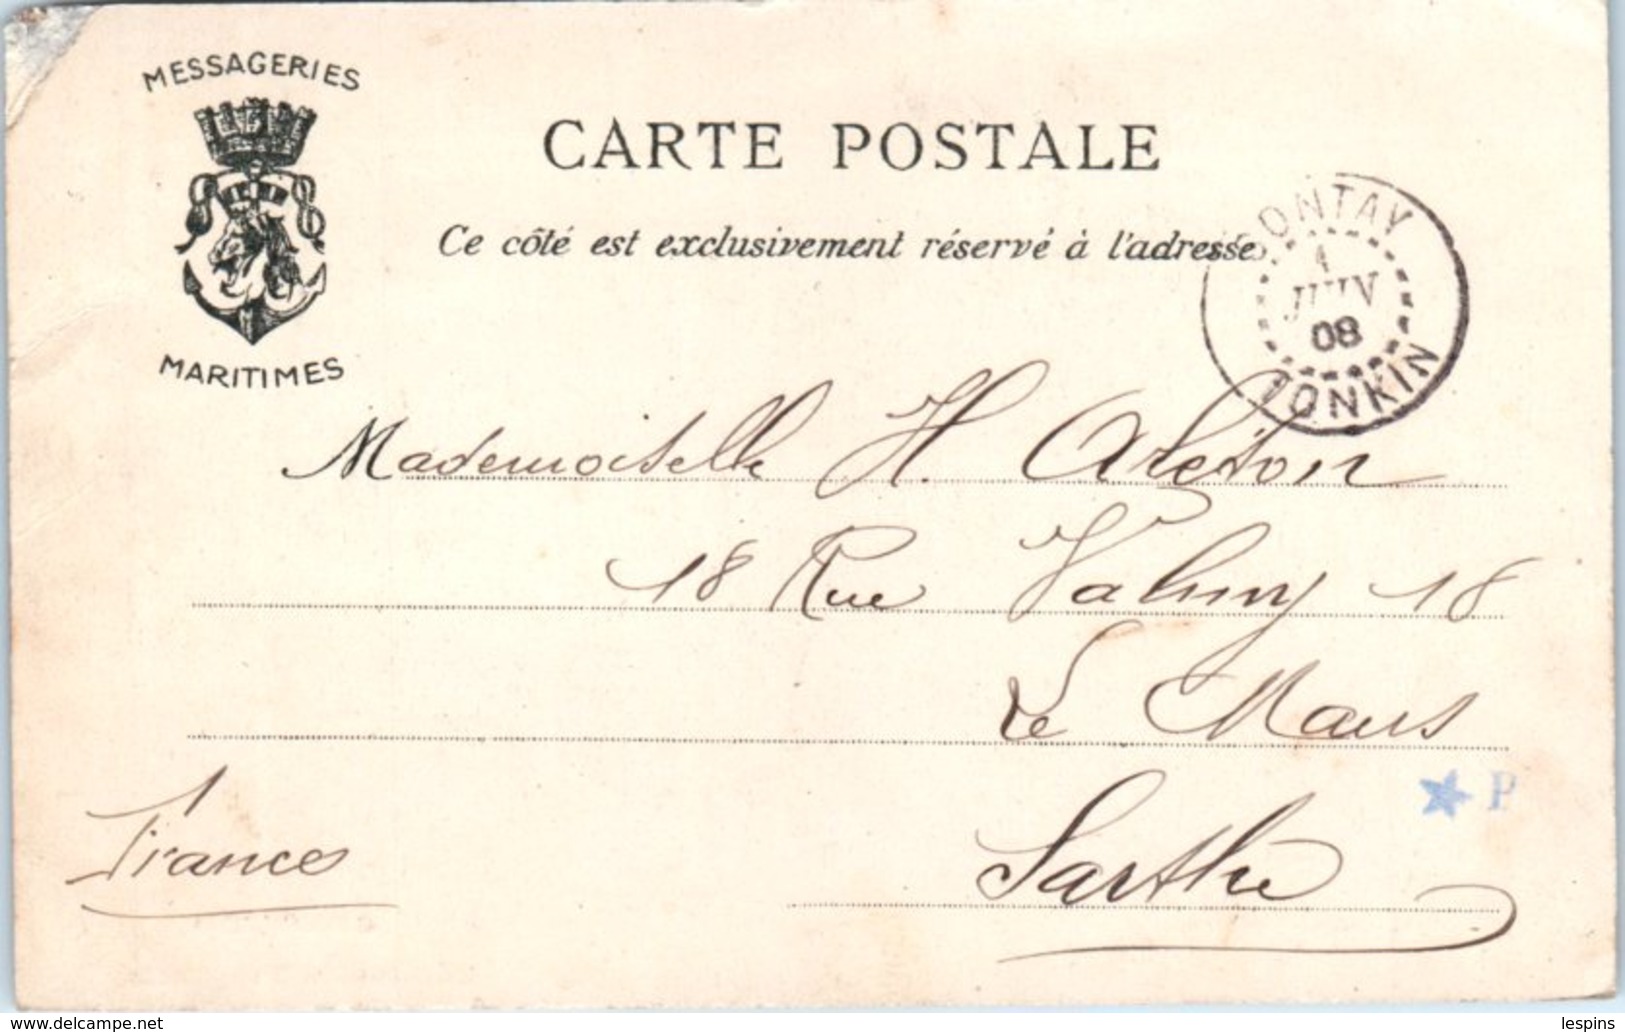 MESSAGERIES
MARITIMES
CARTE POSTALE
Ce côté est exclusivement réservé à l'adresse
SONTAY
JUIN
08
TONKIN
Mademoiselle H.
18 Rue 18
Le Mans
Sarthe
France
P
www.delcampe.net
lespins